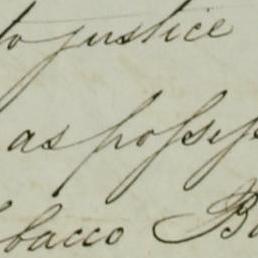 to justice
as possess
obacco B